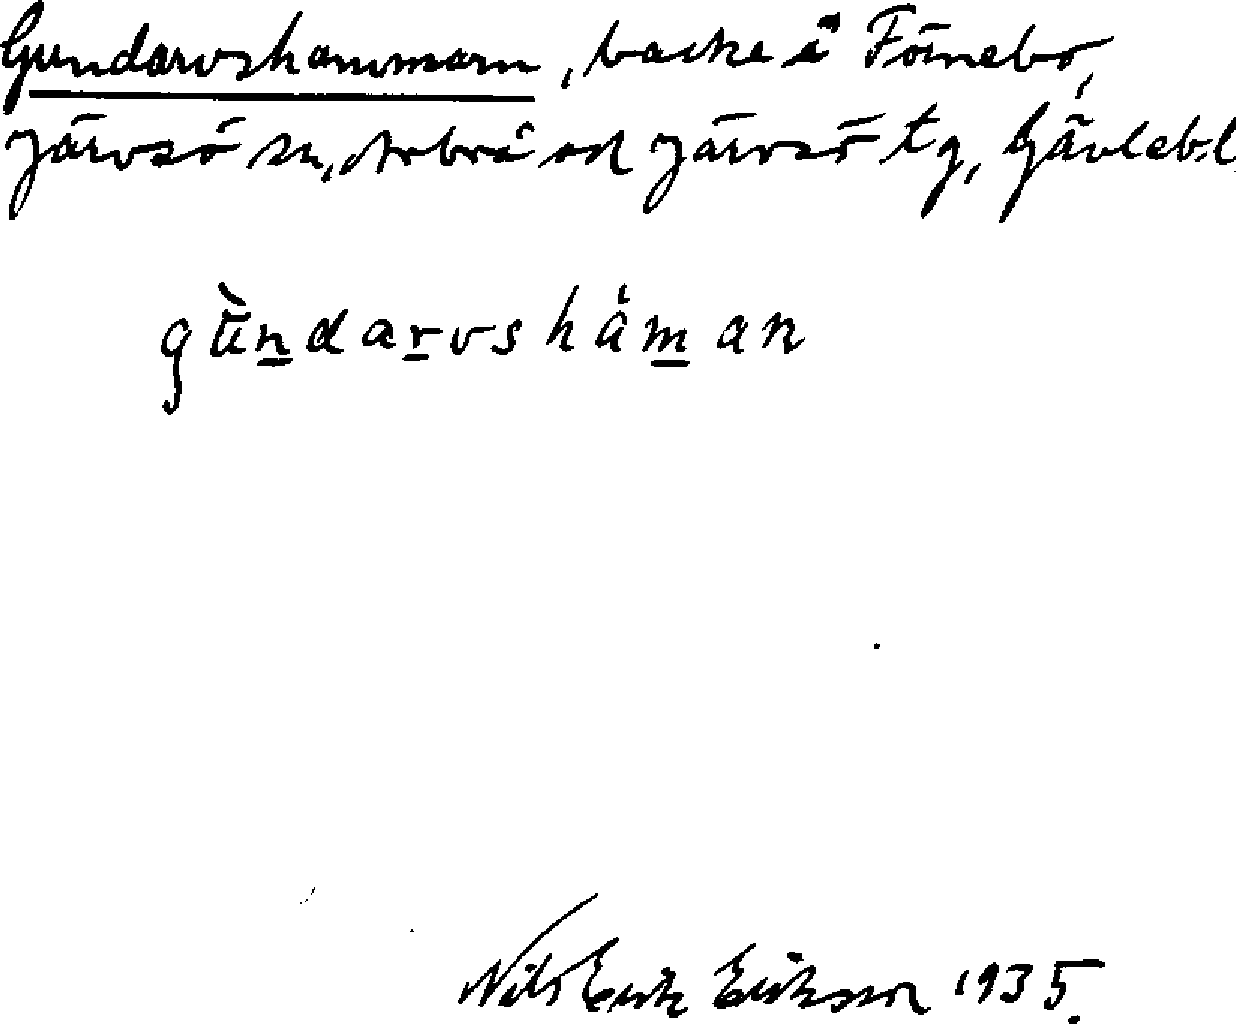 Gundarvshammarn, backe i Förnebo,
Järvsö sn, Arbrå och Järvsö tg, Gävleb.l.
gu̇̀ndarvshå̀man
Nils Erik Eriksson 1935.